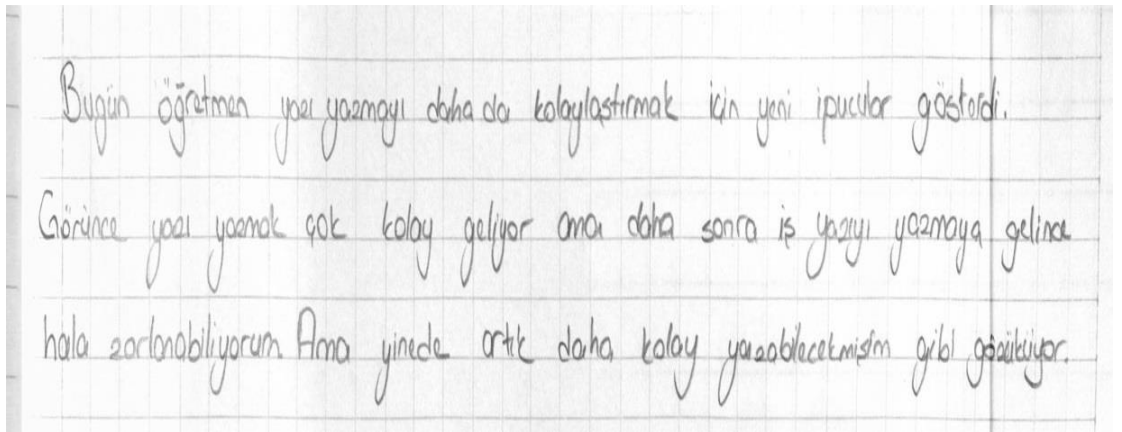 Bugün öğretmen yazı yazmayı daha da kolaylaştırmak için yeni ipucular gösterdi.
Görünce yazı yazmak çok kolay geliyor ama daha sonra iş yazıyı yazmaya gelince
hala zorlanabiliyorum Ama yinede artık daha kolay yazabilecekmişim gibi gözüküyor.